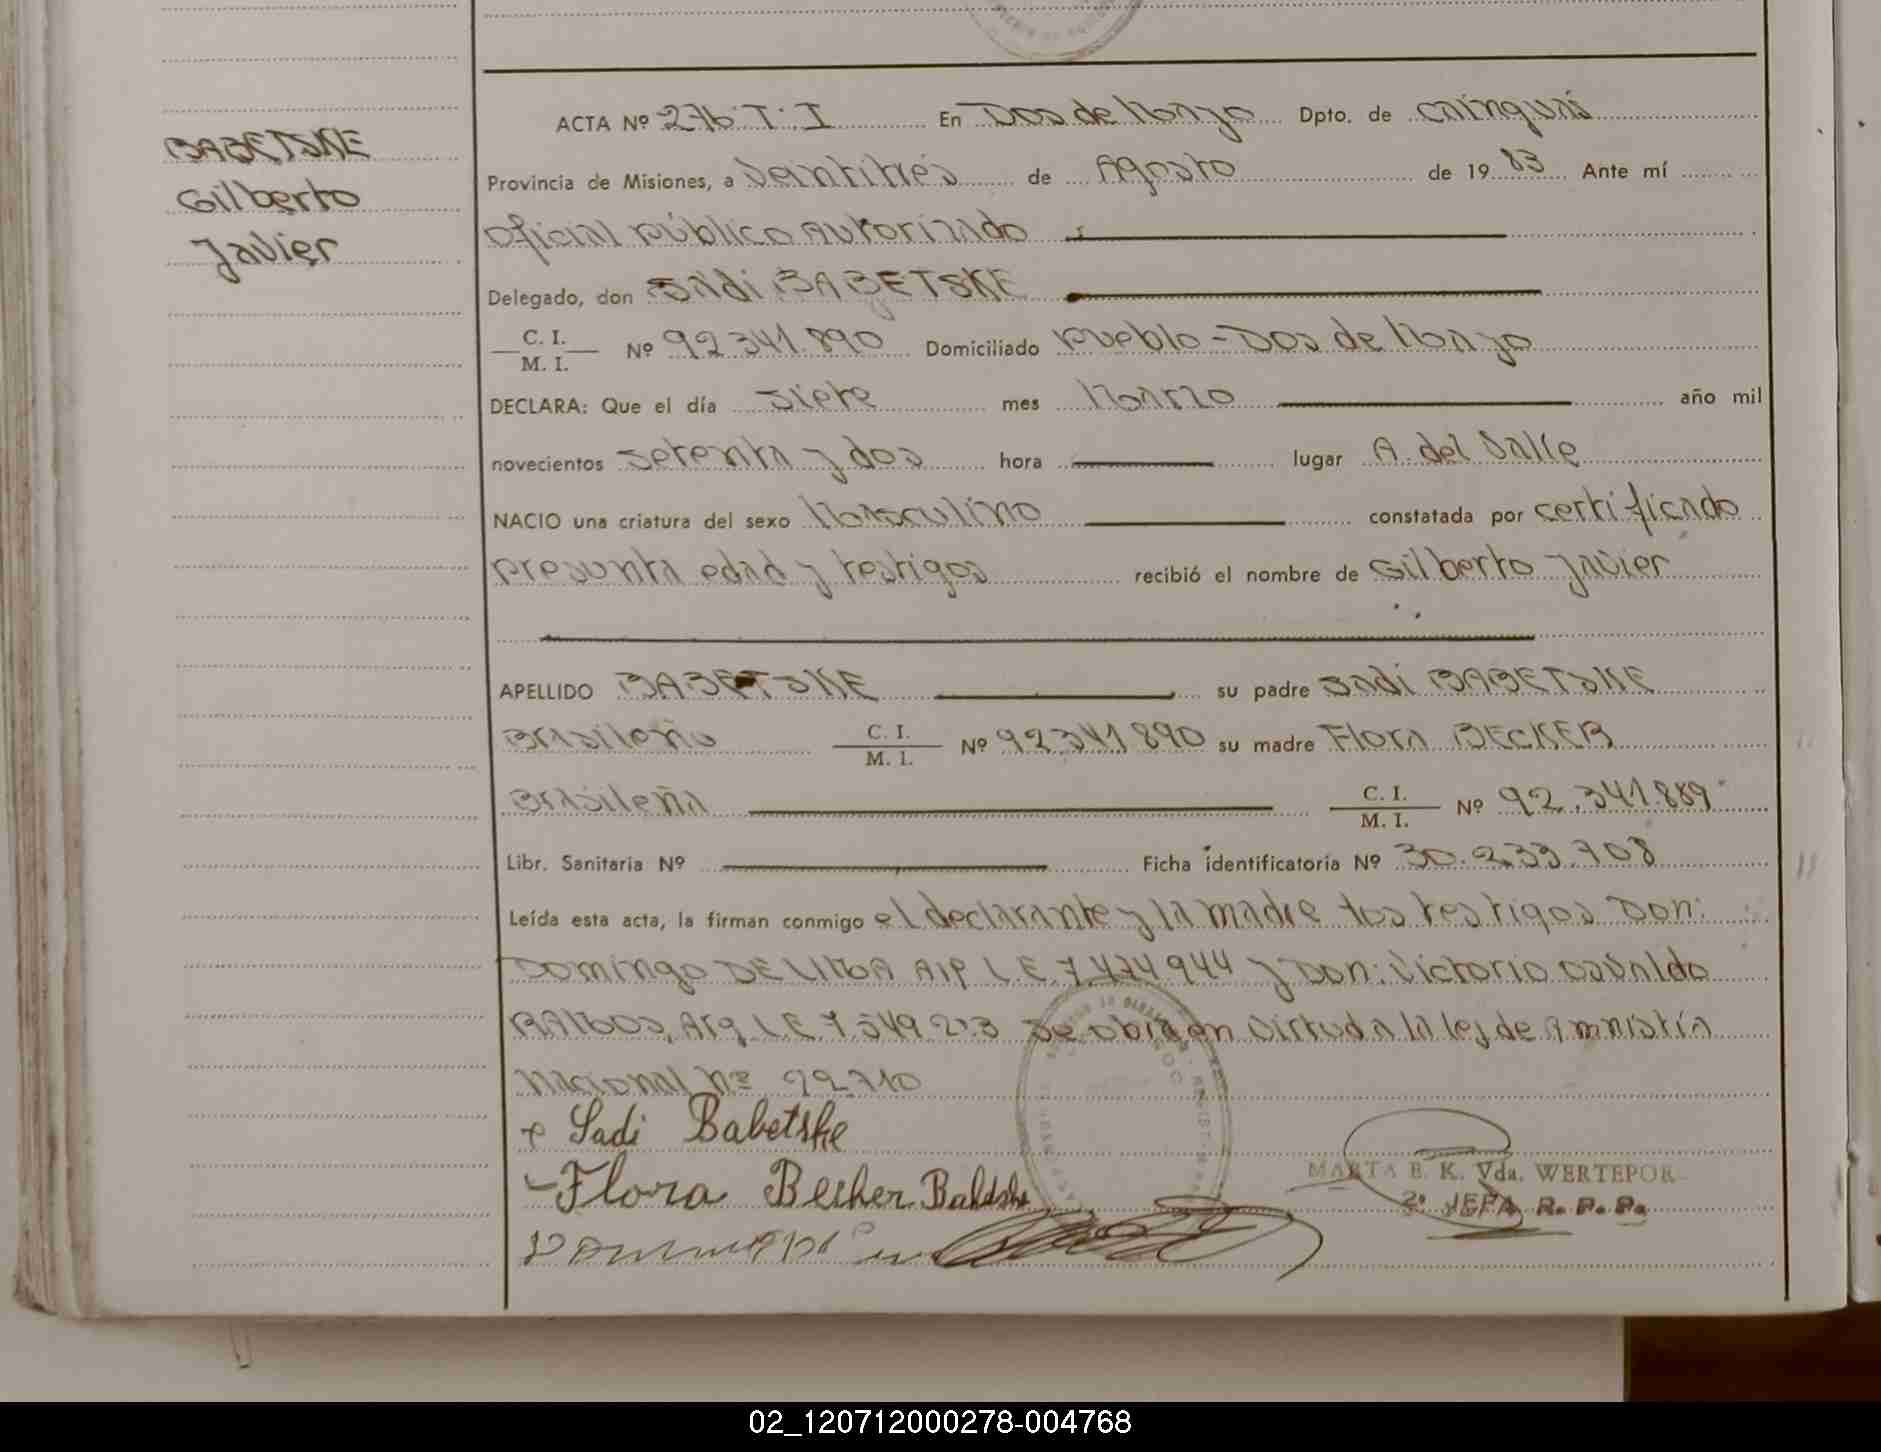 BABETSKE
Gilberto
Javier
ACTA Nº 276 T. I En Dos de Mayo Dpto. de Cainguás
Provincia de Misiones, a Veintitrés de Agosto de 1983 Ante mí
Oficial Público Autorizado
Delegado, don Sadi BABETSKE
C. I. / M. I. Nº 92.341.890 Domiciliado Pueblo - Dos de Mayo
DECLARA: Que el día Siete mes Marzo año mil
novecientos setenta y dos hora lugar A. del Valle
NACIO una criatura del sexo Masculino constatada por certificado
presunta edad y testigos recibió el nombre de Gilberto Javier
APELLIDO BABETSKE su padre Sadi BABETSKE
Brasileño C. I. / M. I. Nº 92341890 su madre Flora BECKER
Brasileña C. I. / M. I. Nº 92.341.889
Libr. Sanitaria Nº Ficha identificatoria Nº 30.233.708
Leída esta acta, la firman conmigo el declarante y la madre los testigos Don:
Domingo DE LIMA Arg L.E. 7.474944 y Don: Victorio Osvaldo
RAMOS, Arg L.E. 7.549.213 Se obra en virtud a la ley de Amnistía
Nacional Nº 22.710
Sadi Babetske
Flora Becher Babetske
MARTA E. K. Vda. WERTEPOR
2º JEFA R. P. P.
02_120712000278-004768